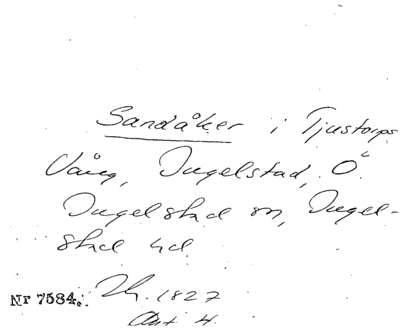 Sandåker i Tjustorps
Vång, Ingelstad, Ö.
Ingelstad sn, Ingel-
stad hd.
Nr 7584. 1827